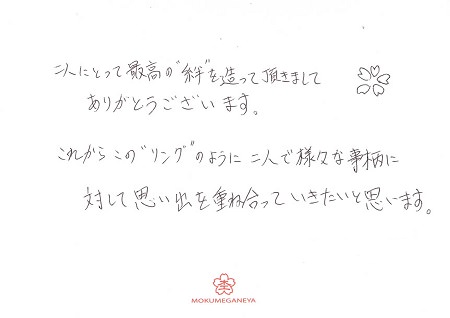 二人にとって最高の"絆"を造って頂きまして
ありがとうございます。
これからこの"リング"のように二人で様々な事柄に
対して思い出を重ね合っていきたいと思います。
杢
MOKUMEGANEYA